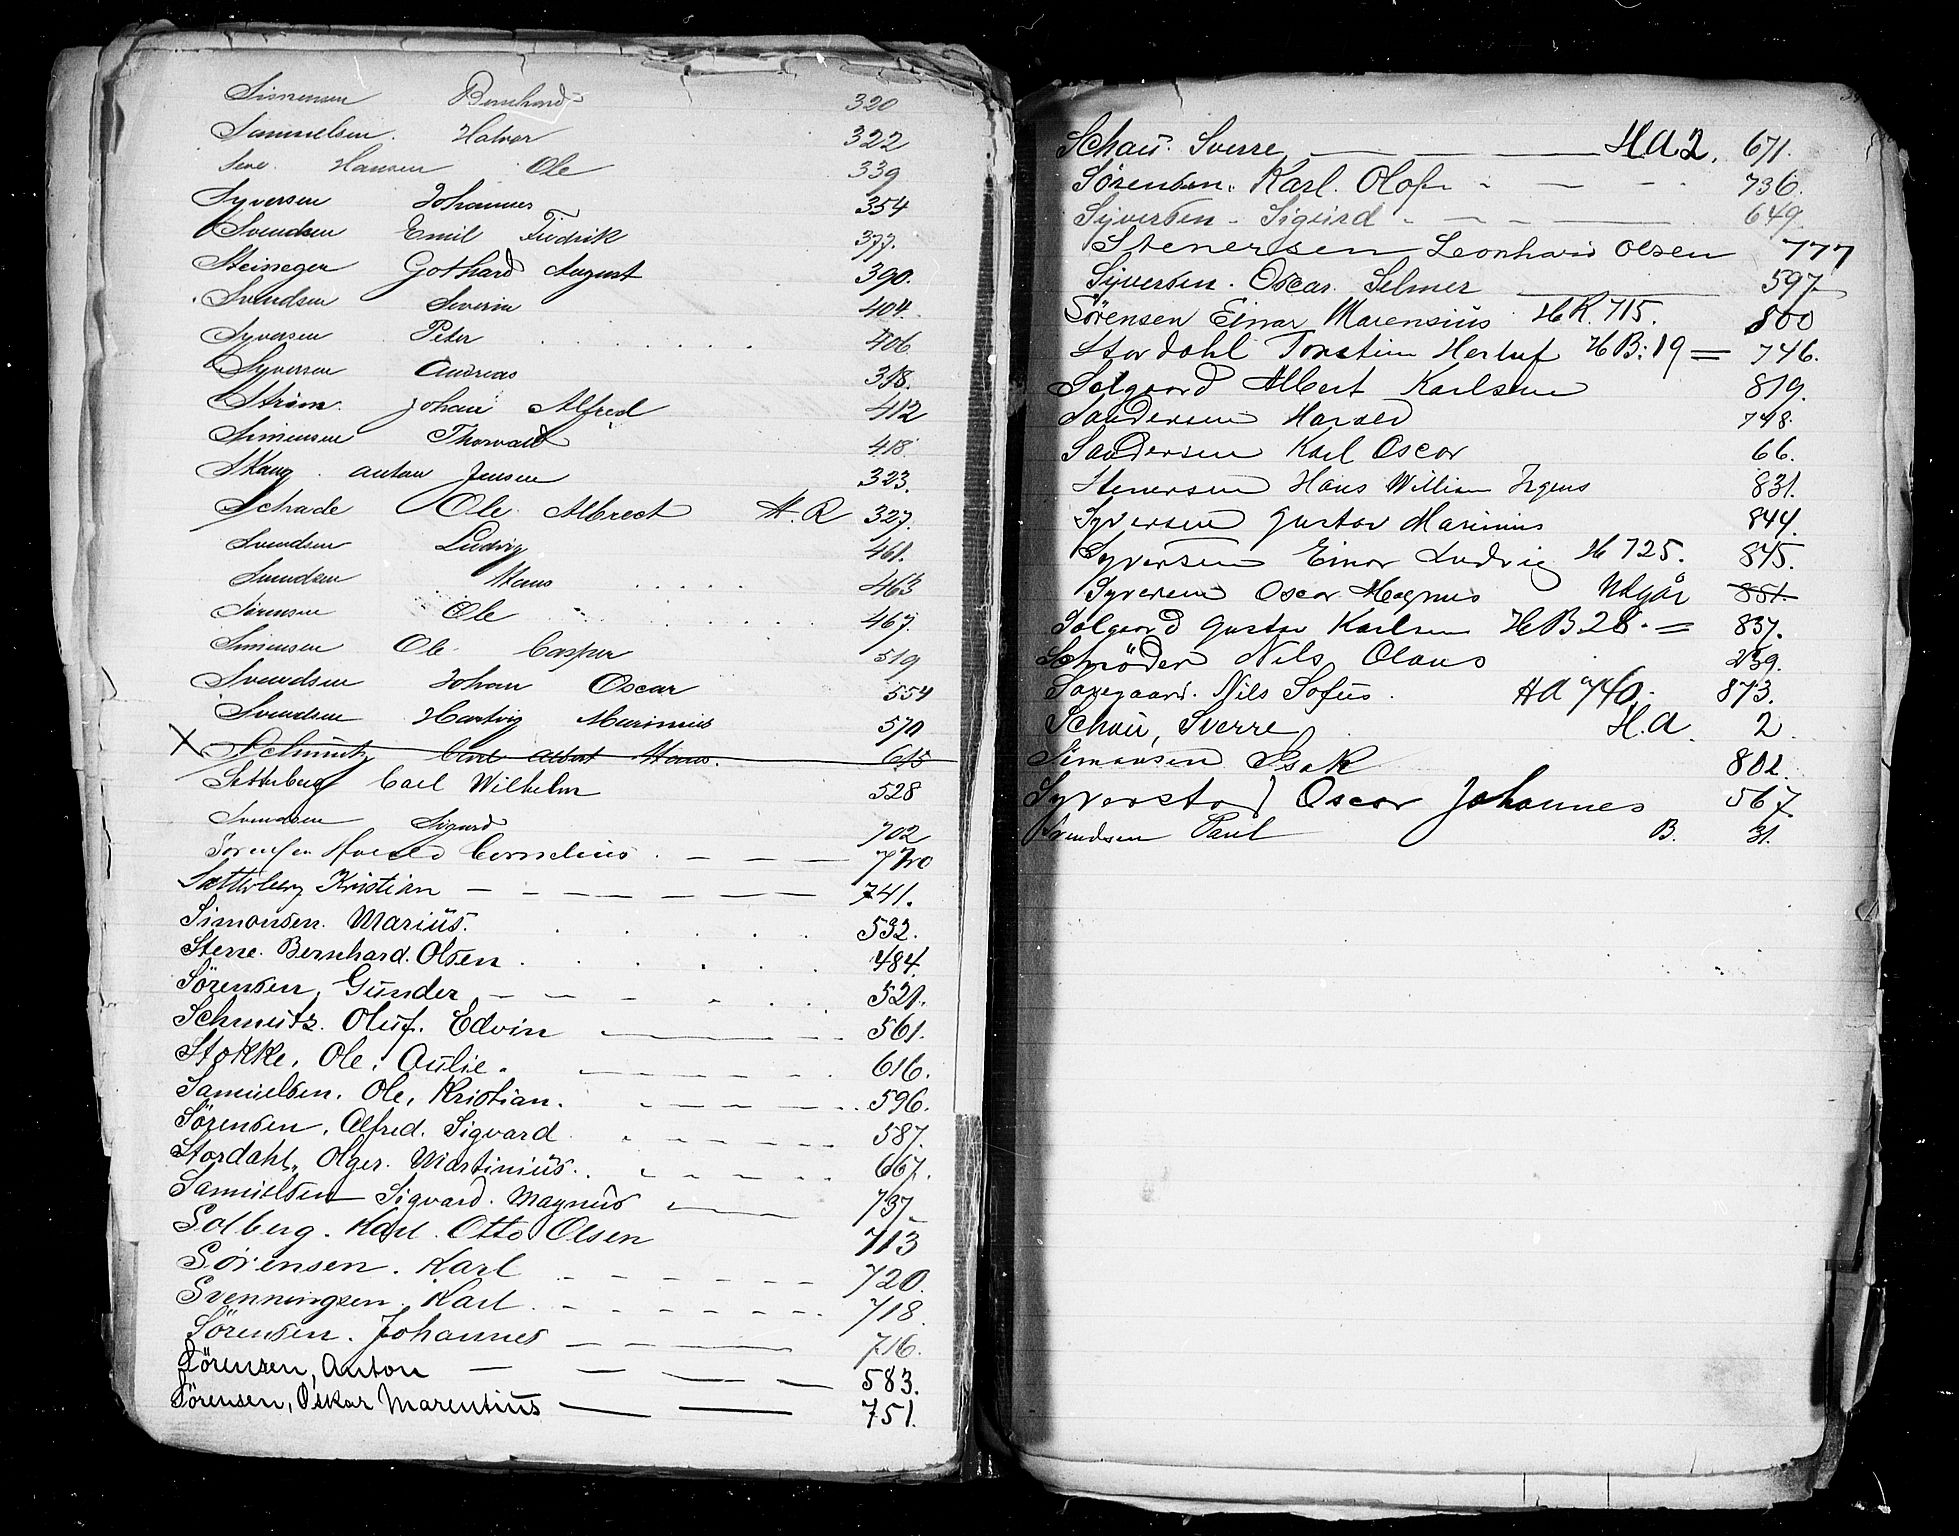 Simensen Bernhard 320
Samuelsen. Halvor 322
Seve. Hansen Ole 339
Syversen Johannes 354
Svendsen Emil Fredrik 377.
Steineger Gothard August 390.
Svendsen Severin 404.
Syversen Peter 406
Syversen Andreas 318.
Strøm. Johan Alfred 412
Simensen Thorvald 418.
Skaug. Anton Jensen 323.
Schade Ole Albrecht H. R 327.
Svendsen Ludvig 461.
Svendsen Hans 463
Sørensen Ole 467
Simensen Ole Casper 519
Svendsen Johan Oscar 554
Svendsen Hartvig Marinius 570
X Schmutz Carl Albert Hans. 615
Sætterberg Carl Wilhelm 528
Svendsen Sigurd 702
Sørensen Harald Cornelius 770
Sætterberg Kristian 741.
Simonsen. Marius. 532.
Stene. Bernhard. Olsen 484.
Sørensen, Gunder 521.
Schmutz. Oluf. Edvin 561.
Stokke. Ole. Aulie. 616.
Samuelsen. Ole. Kristian. 596.
Sørensen. Alfred. Sigvard 587.
Stordahl. Olger. Martinius. 667.
Samuelsen Sigvard. Magnus 737
Solberg. Karl. Otto Olsen 713
Sørensen. Karl 720.
Svenningsen. Karl 718.
Sørensen. Johannes 716.
Sørensen, Anton 583.
Sørensen, Oskar Marentius 751.
Schau. Sverre H.A 2. 671.
Sørensen. Karl. Olof 736.
Syversen. Sigurd 649.
Stenersen Leonhard Olsen 777
Syversen. Oscar. Selmer 597
Sørensen Einar Marensius H R. 715. 800
Stordahl Torstein Herluf H B: 19 = 746.
Solgaard Albert Karlsen 819.
Sandersen Harald 748.
Sandersen Karl Oscar 66.
Stenersen Hans William Irgens 831.
Syversen Gustav Marinius 844.
Syversen Einar Ludvig H 725. 845.
Syversen Oscar Magnus Utgår 851.
Solgaard Gustav Karlsen H B 28. = 837.
Schrøder Nils Olaus 239.
Saxegaard. Nils Sofus. H A 740. 873.
Schau, Sverre H.A. 2
Simonsen Isak 802.
Syverstad Oscar Johannes 567
Svendsen Paul B. 31.